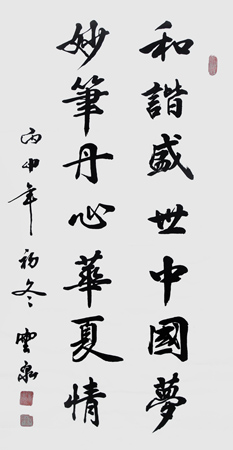 和諧盛世中國夢
妙筆丹心華夏情
丙申年初冬雲泉